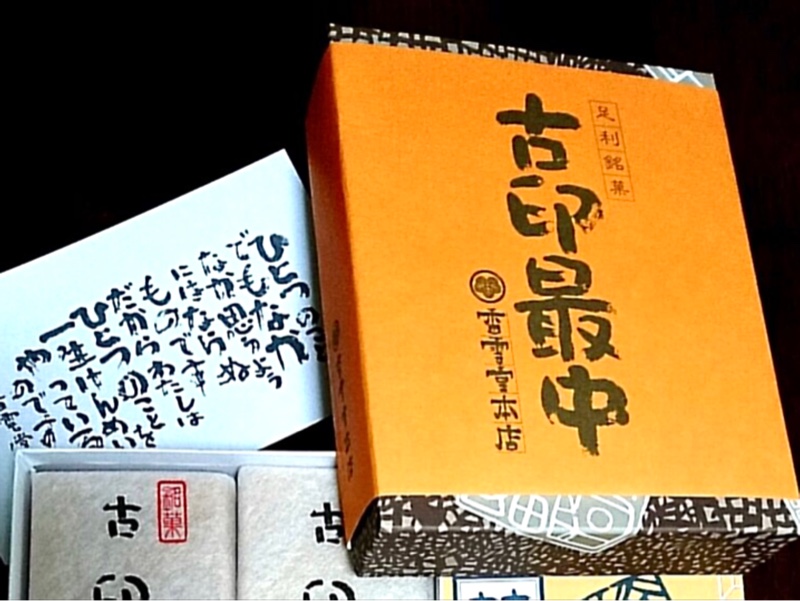 足利銘菓
古印最中
香雲堂本店
ひとつの
でもなか
なか思うよう
にはならぬ
ものです
だからわたしは
ひとつのことを
一生けんめい
やっている
のです
銘菓
古印
古印